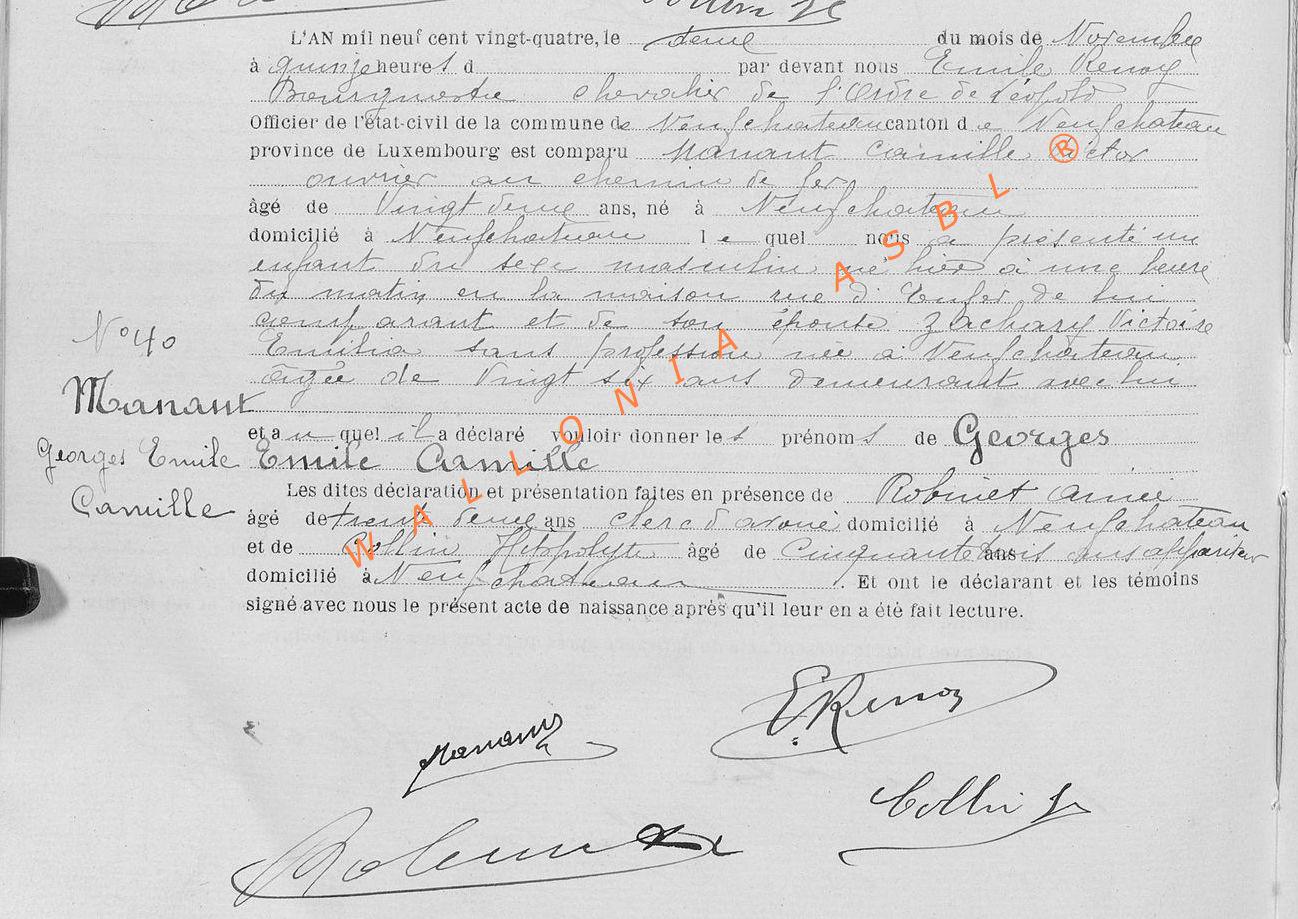 L'AN mil neuf cent vingt-quatre, le deux du mois de Novembre
à quinze heures d par devant nous Emile Renoy
Bourgmestre chevalier de l'Ordre de Léopold
Officier de l'état-civil de la commune de Neufchateau canton de Neufchateau
province de Luxembourg est comparu Manant Camille Victor
ouvrier au chemin de fer
âgé de Vingt deux ans, né à Neufchateau
domicilié à Neufchateau lequel nous a présenté un
enfant du sexe masculin né hier à une heure
du matin en la maison rue d'Enfer de lui
comparant et de son épouse Zachary Victoire
Emilia sans profession née à Neufchateau
âgée de vingt six ans demeurant avec lui
N° 40
Manant
Georges Emile
Camille
et au quel il a déclaré vouloir donner les prénoms de Georges
Emile Camille
Les dites déclaration et présentation faites en présence de Robinet Aimé
âgé de trente deux ans clerc d'avoué domicilié à Neufchateau
et de Collin Hippolyte âgé de Cinquante trois ans ans appariteur
domicilié à Neufchateau . Et ont le déclarant et les témoins
signé avec nous le présent acte de naissance après qu'il leur en a été fait lecture.
ERenoy
Manant
Collin H
Robinet
WALLONIA ASBL ®